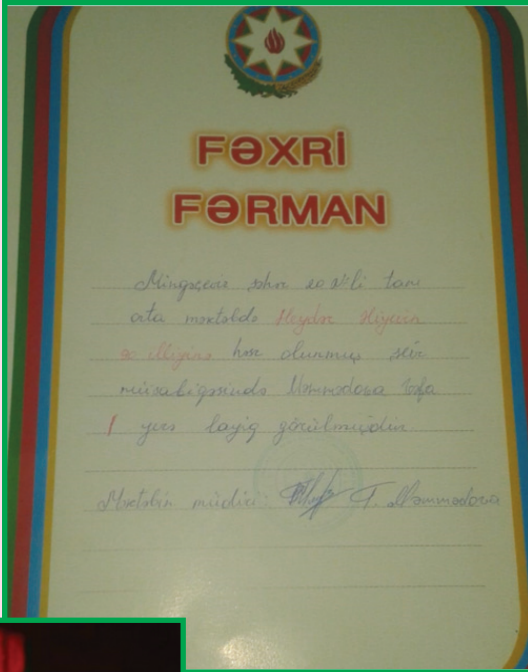 FƏXRİ
FƏRMAN
Mingəçevir şəhər 20 №li tam
orta məktəbdə Heydər Əliyevin
90 illiyinə həsr olunmuş şeir
müsabiqəsində Məmmədova Vəfa
I yerə layiq görülmüşdür.
Məktəbin müdiri: T. Məmmədova